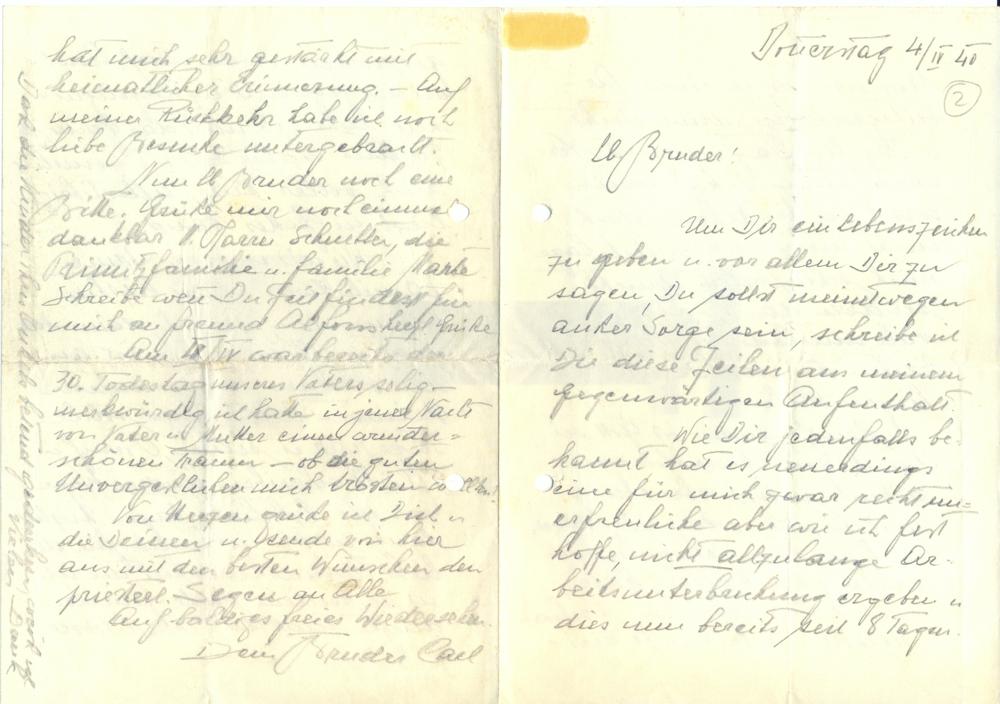 Donnerstag 4/IV 40
2
lb Bruder!
Um Dir ein Lebenszeichen
zu geben u. vor allem Dir zu
sagen, Du sollst meinetwegen
außer Sorge sein, schreibe ich
Dir diese Zeilen aus meinem
gegenwärtigen Aufenthalt.
Wie Dir jedenfalls be-
kannt hat es neuerdings
eine für mich zwar recht un=
erfreuliche aber wie ich fest
hoffe, nicht allzulange Ar-
beitsunterbrechung ergeben u
dies nun bereits seit 8 Tagen.
hat mich sehr gestärkt mit
heimatlicher Erinnerung. – Auf
meiner Rückkehr habe ich noch
liebe Besuche untergebracht.
Nun lb Bruder noch eine
Bitte. Grüße mir noch einmal
dankbar H. Pfarrer die
familie u. familie
Schreibe wenn Du Zeit findest für
mich an freund Alfons herzl Grüße
Am IV war bereits der
30. Todestag unseres Vaters selig –
merkwürdig ich hatte in jener Nacht
von Vater u Mutter einen wunder=
schönen Traum – ob die guten
Unvergeßlichen mich trösten wollten!
Von Herzen grüße ich Dich u
die Deinen u. sende von hier
aus mit den besten Wünschen den
priesterl. Segen an Alle
Auf baldiges freies Wiedersehn.
Dein Bruder Carl
Daß die Kinder betend gedenken, weiß ich
Vielen Dank